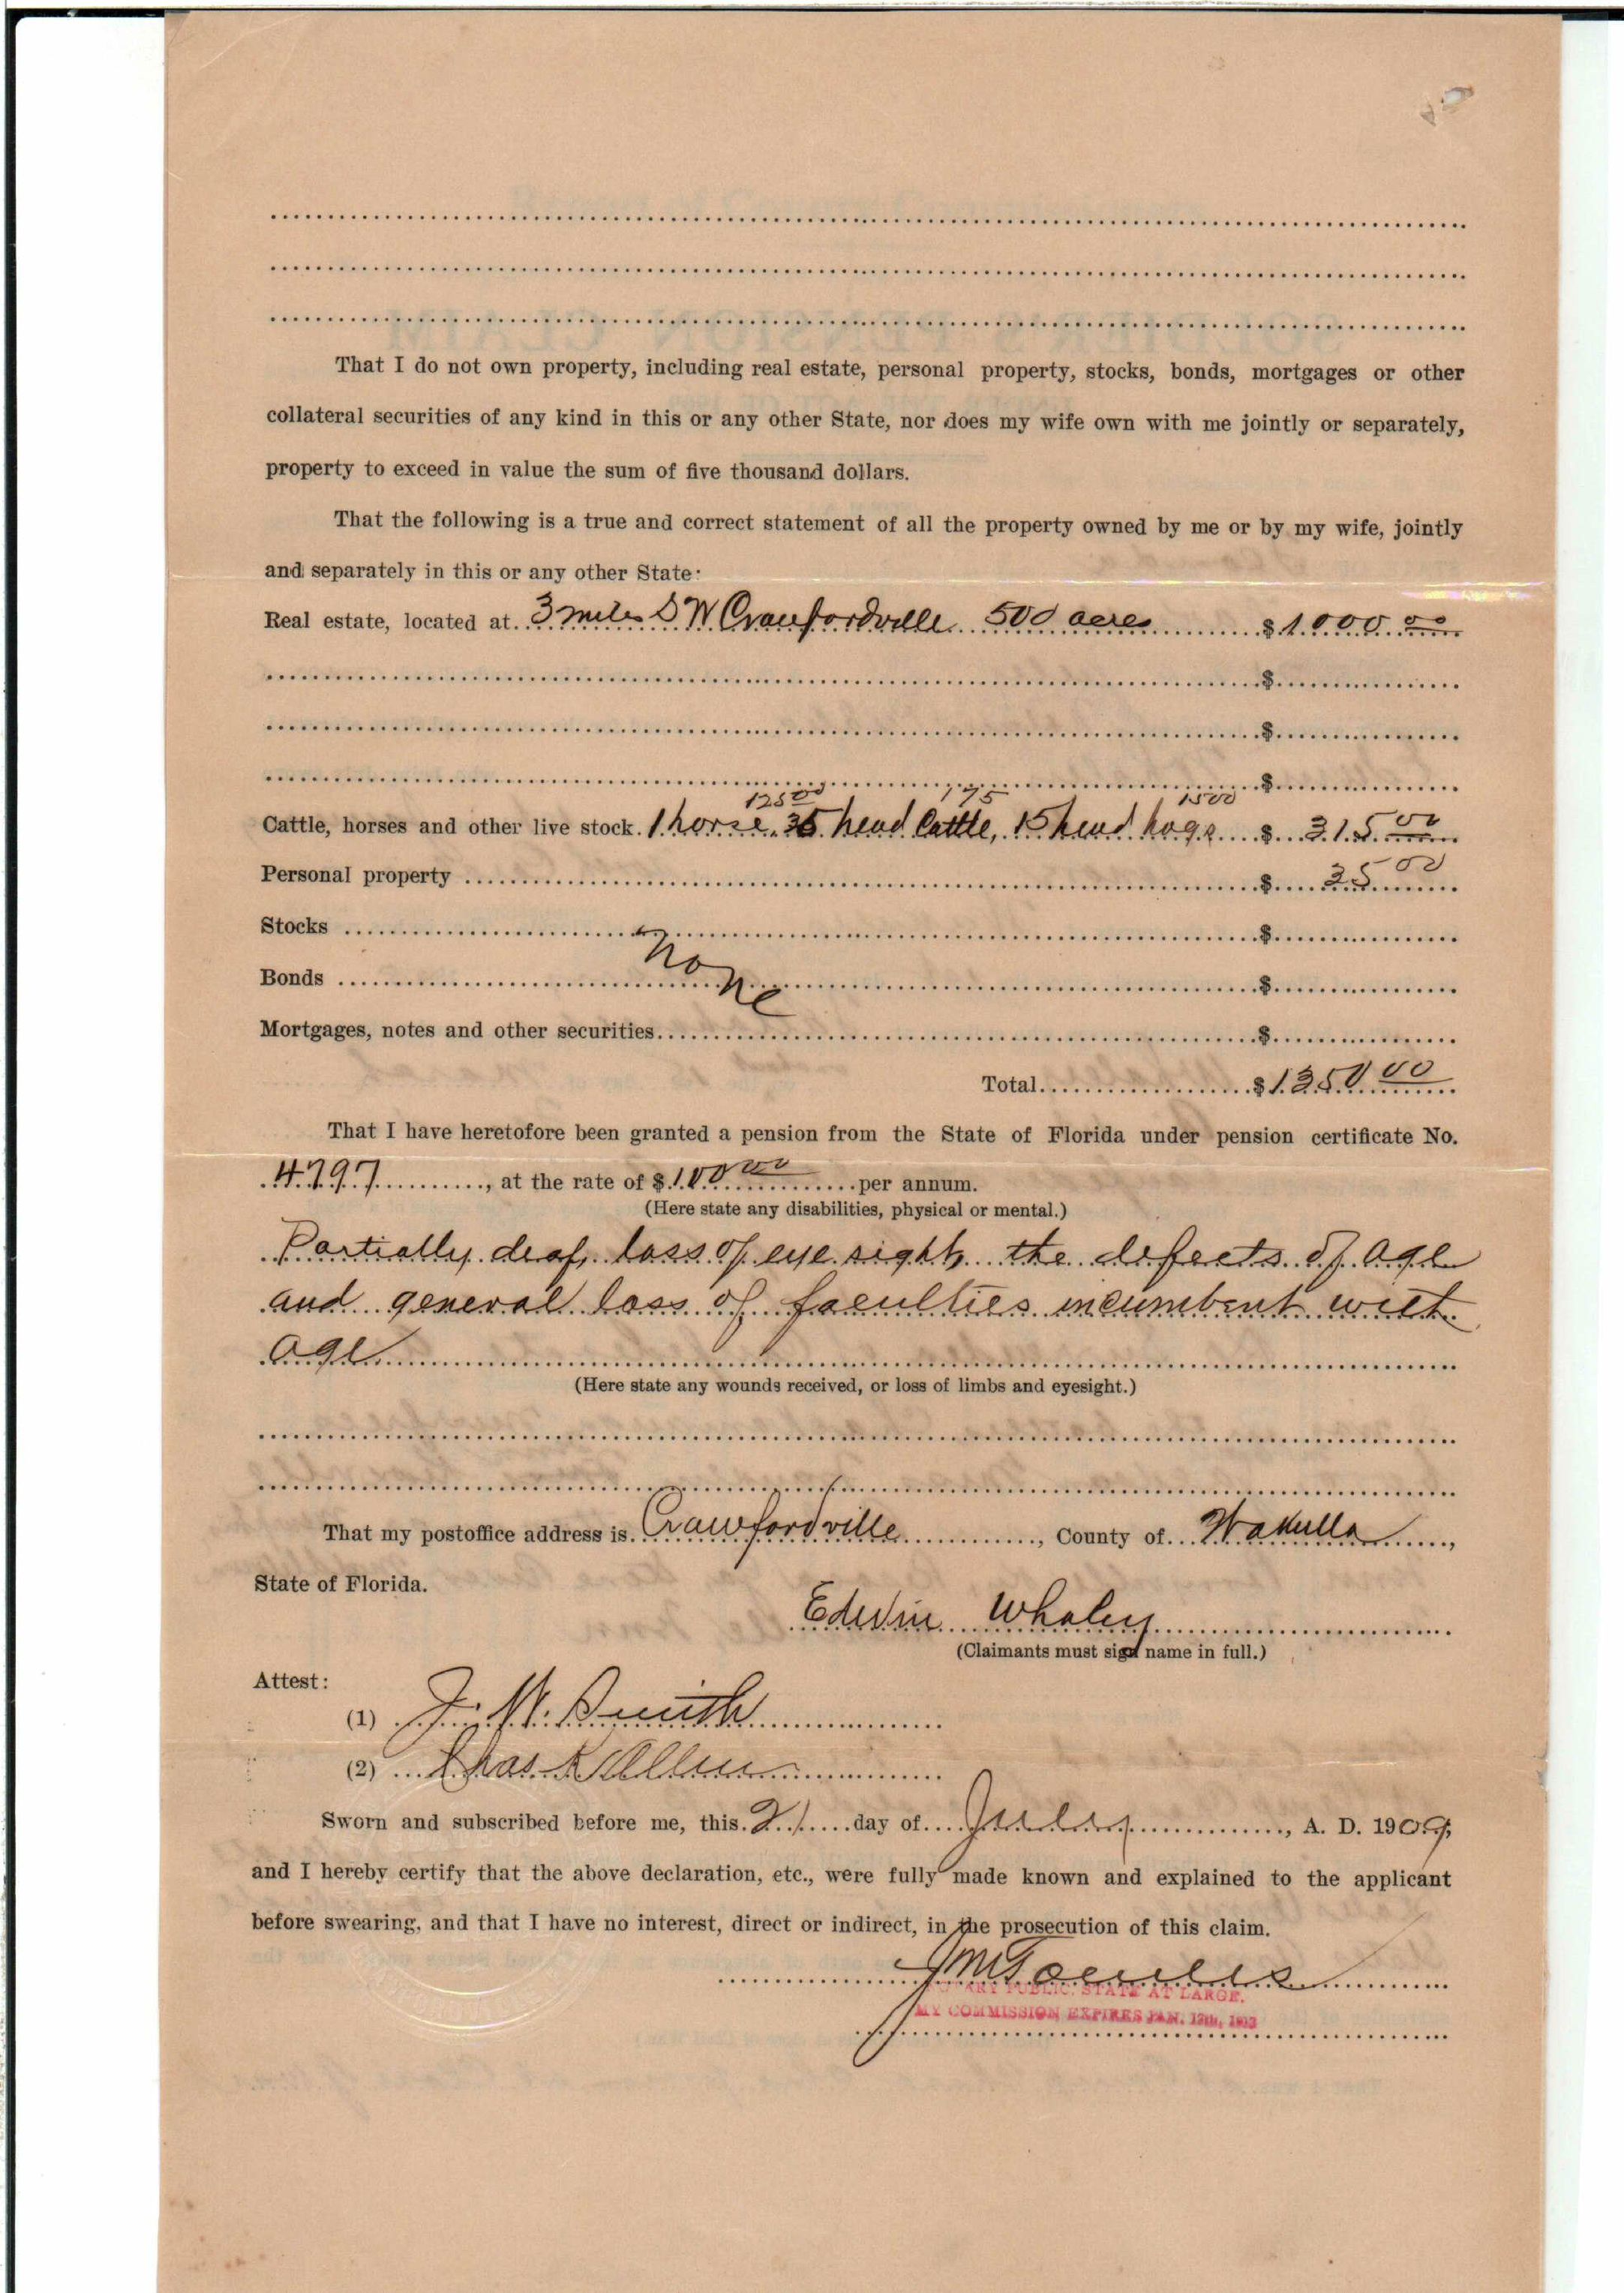 That I do not own property, including real estate, personal property, stocks, bonds, mortgages or other
collateral securities of any kind in this or any other State, nor does my wife own with me jointly or separately,
property to exceed in value the sum of five thousand dollars.
That the following is a true and correct statement of all the property owned by me or by my wife, jointly
and separately in this or any other State:
Real estate, located at 3 miles S W Crawfordville 500 acres $ 1000.00
$
$
$
125 00 175 15 00
Cattle, horses and other live stock. 1 horse, 35 head Cattle, 15 head hogs $ 315 00
Personal property $ 35 00
Stocks $
None
Bonds $
Mortgages, notes and other securities $
Total $ 1350 00
That I have heretofore been granted a pension from the State of Florida under pension certificate No.
4797, at the rate of $ 100 00 per annum.
(Here state any disabilities, physical or mental.)
Partially deaf, loss of eye sight, the defects of age
and general loss of faculties incumbent with
age
(Here state any wounds received, or loss of limbs and eyesight.)
That my postoffice address is Crawfordville, County of Wakulla,
State of Florida.
Edwin Whaley
(Claimants must sign name in full.)
Attest:
(1) J. W. Smith
(2) Chas K Allen
Sworn and subscribed before me, this 21 day of July, A. D. 1909,
and I hereby certify that the above declaration, etc., were fully made known and explained to the applicant
before swearing, and that I have no interest, direct or indirect, in the prosecution of this claim.
NOTARY PUBLIC, STATE AT LARGE.
MY COMMISSION EXPIRES JAN. 12th, 1913